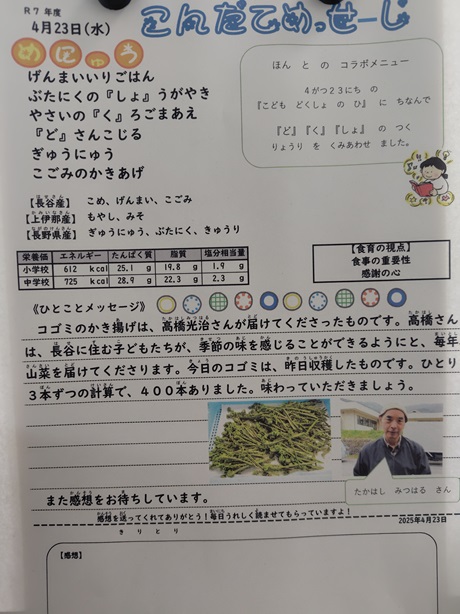 R7年度
4月23日(水)
こんだてめっせーじ
めにゅう
げんまいいりごはん
ぶたにくの『しょ』うがやき
やさいの『く』ろごまあえ
『ど』さんこじる
ぎゅうにゅう
こごみのかきあげ
ほん と の コラボメニュー
4がつ23にち の
『こども どくしょ の ひ』 に ちなんで
『ど』『く』『しょ』 の つく
りょうり を くみあわせ ました。
【長谷産】 こめ、げんまい、こごみ
【上伊那産】 もやし、みそ
【長野県産】 ぎゅうにゅう、ぶたにく、きゅうり
栄養価 エネルギー たんぱく質 脂質 塩分相当量
小学校 612 kcal 25.1 g 19.8 g 1.9 g
中学校 725 kcal 28.9 g 22.3 g 2.3 g
【食育の視点】
食事の重要性
感謝の心
《ひとことメッセージ》
コゴミのかき揚げは、高橋光治さんが届けてくださったものです。高橋さん
は、長谷に住む子どもたちが、季節の味を感じることができるようにと、毎年
山菜を届けてくださります。今日のコゴミは、昨日収穫したものです。ひとり
3本ずつの計算で、400本ありました。味わっていただきましょう。
たかはし みつはる さん
また感想をお待ちしています。
感想を送ってくれてありがとう！毎日うれしく読ませてもらっていますよ！
2025年4月23日
きりとり
【感想】